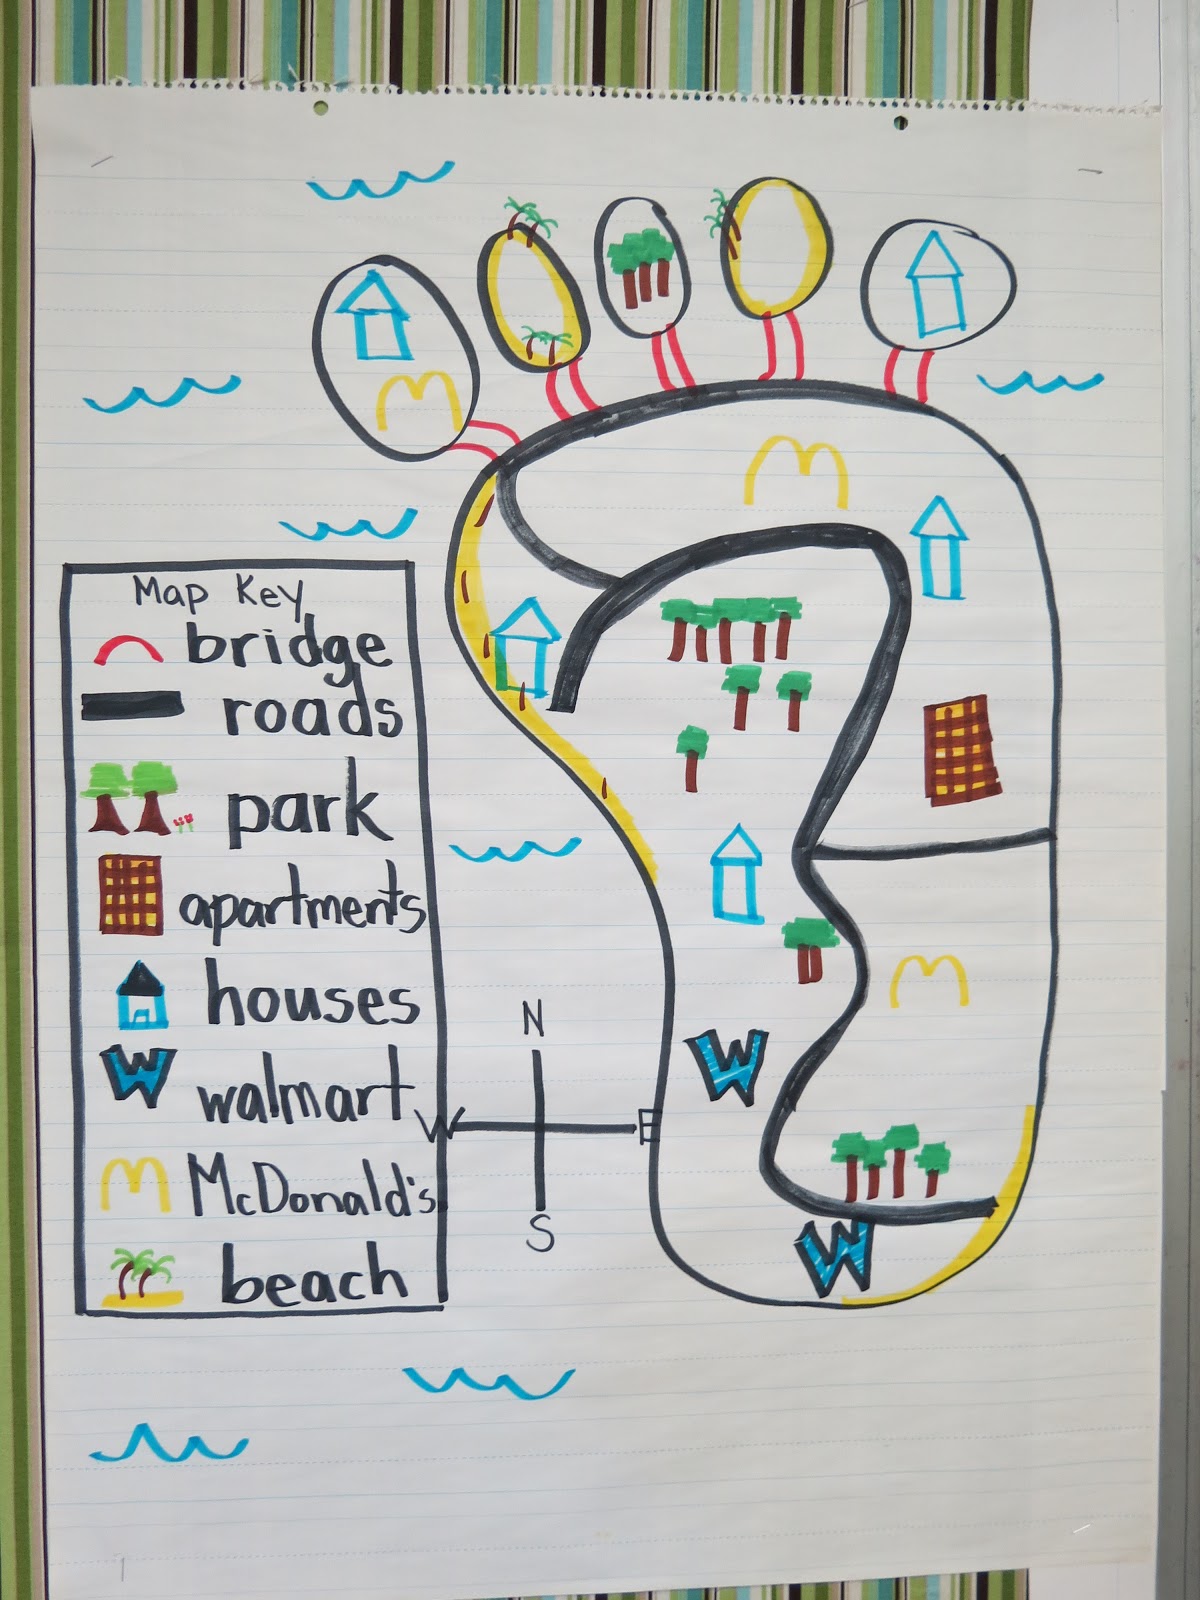 Map Key
bridge
roads
park
apartments
houses
W walmart
McDonald's
beach
N
W E
S
M
M
M
W
W